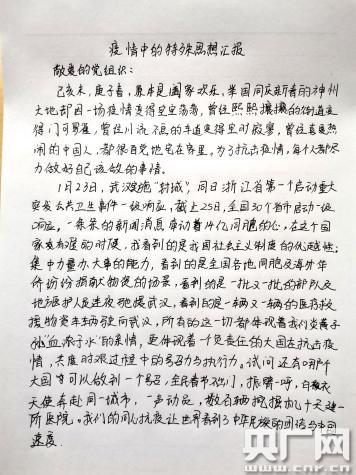 疫情中的特殊思想汇报
敬爱的党组织：
己亥末，庚子春，原本是阖家欢乐，举国同庆新春的神州
大地却因一场疫情变得空空荡荡，曾经熙熙攘攘的街道变
得门可罗雀，曾经川流不息的车道变得空时寂寥，曾经喜爱热
闹的中国人，都很自觉地宅在家里。为了抗击疫情，每个人都尽
力做好自己该做的事情。
1月23日，武汉实施"封城"，同日浙江省第一个启动重大
突发公共卫生事件一级响应，截止25日，全国30个省市启动一级
响应。一条条的新闻消息牵动着14亿同胞的心，在这个国
家发难的时候，我看到的是我国社会主义制度的优越性：
集中力量办大事的能力，看到的是全国各地同胞及海外华
侨纷纷捐献物资的场景，看到的是一批又一批的部队及
地方医护人员连夜驰援武汉，看到的是一辆又一辆的医疗救
援物资车辆驶向武汉，所有的这一切都体现着我们炎黄子
孙"血浓于水"的亲情，更体现着一个负责任的大国在抗击疫
情，共度时艰过程中的号召力与执行力。试问还有哪个
大国可以做到一个号召，全民春节不出门，振臂一呼，白衣
天使奔赴同一城市，一声动员，数百辆挖掘机十天建一
所医院。我们的同心抗疫让世界看到了中华民族的团结与中国
速度。
央广网
cnr.cn